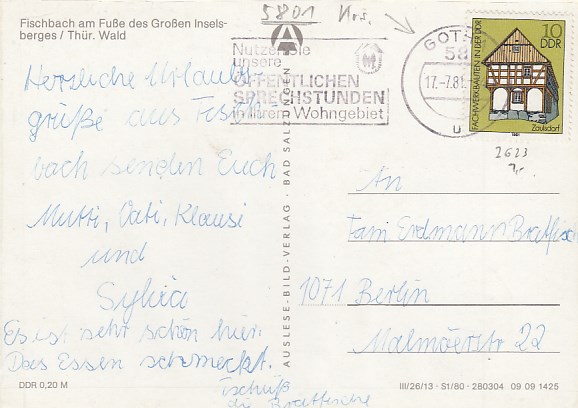 Fischbach am Fuße des Großen Insels-
berges / Thür. Wald
5801 Krs.
Nutzen Sie
unsere
ÖFFENTLICHEN
SPRECHSTUNDEN
in Ihrem Wohngebiet
GOTHA
58
17.-7.81
u
10
DDR
FACHWERKBAUTEN IN DER DDR
Zaulsdorf
1981
2623
Herzliche Urlaubs-
grüße aus Fisch-
bach senden Euch
Mutti, Vati, Klausi
und
Sylvia
Es ist sehr schön hier.
Das Essen schmeckt.
Tschüß
die
AUSLESE-BILD-VERLAG · BAD SALZUNGEN
An
Fam Erdmann
1071 Berlin
Malmöerstr 22
DDR 0,20 M
III/26/13 · S1/80 · 280304 09 09 1425